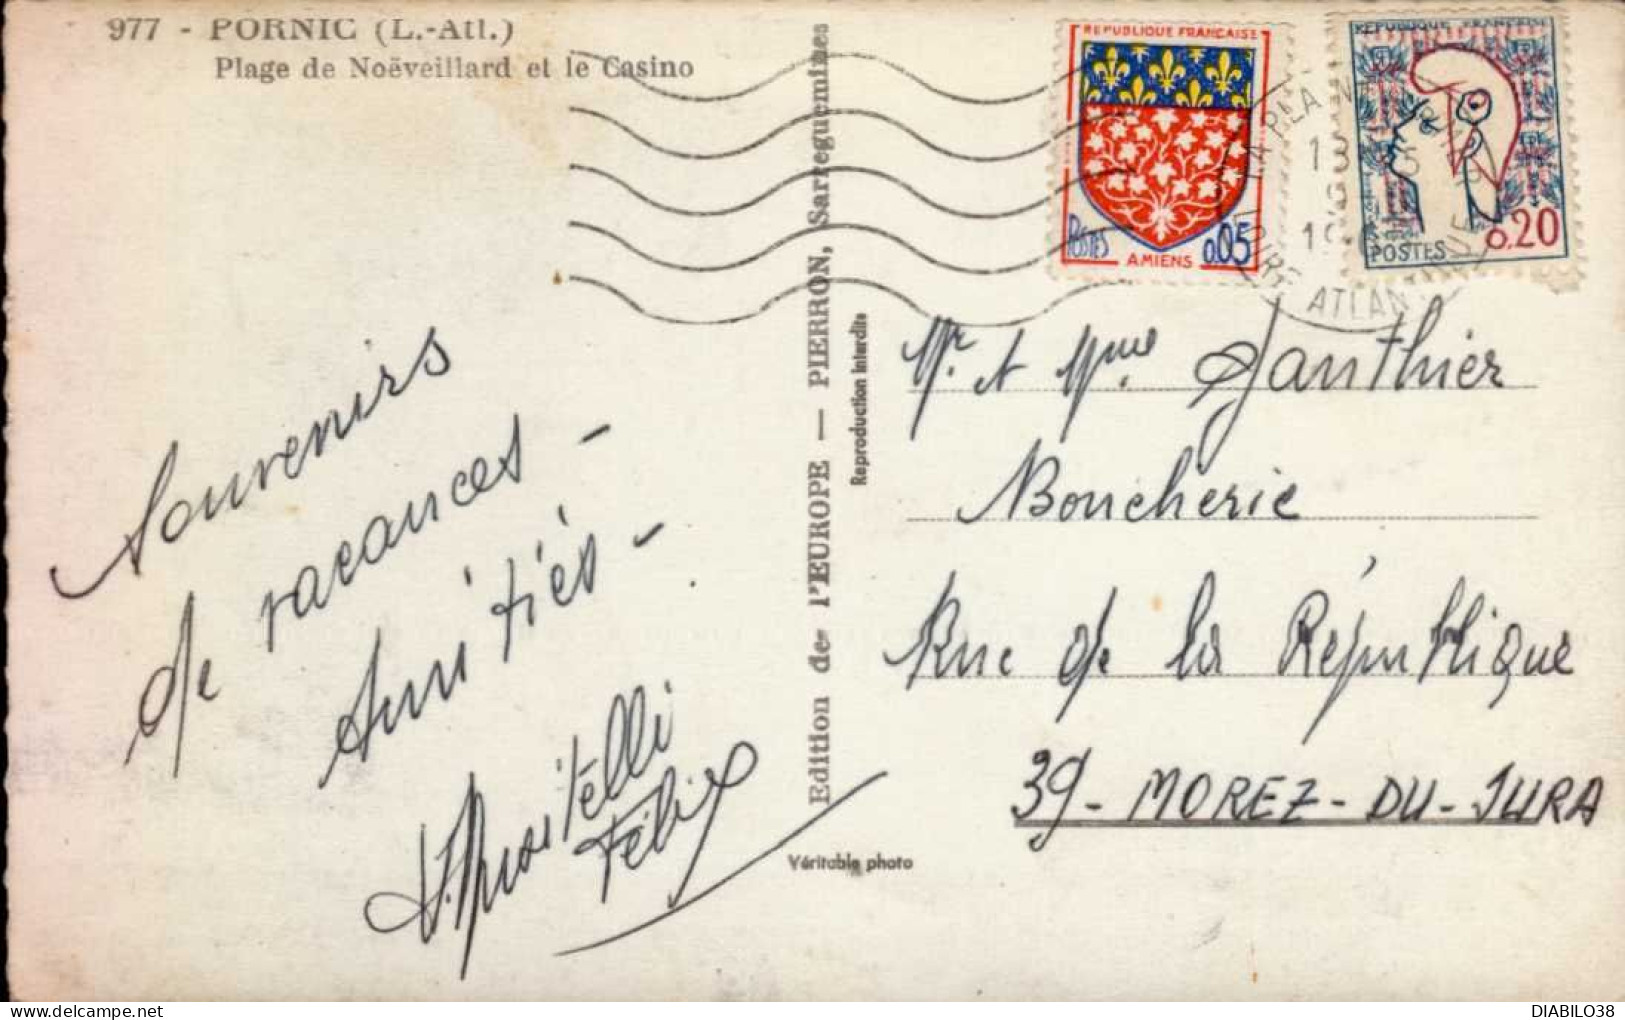 977 - PORNIC (L.-Atl.)
Plage de Noëveillard et le Casino
REPUBLIQUE FRANÇAISE
POSTES
AMIENS
0,05
REPUBLIQUE FRANÇAISE
POSTES
0.20
ATLAN
Souvenirs
de vacances -
Amitiés -
Félix
Edition de l'EUROPE — PIERRON, Sarreguemines
Reproduction interdite
Véritable photo
Mr. et Mme Gauthier
Boucherie
Rue de la République
39 - MOREZ - DU - JURA
DIABILO38